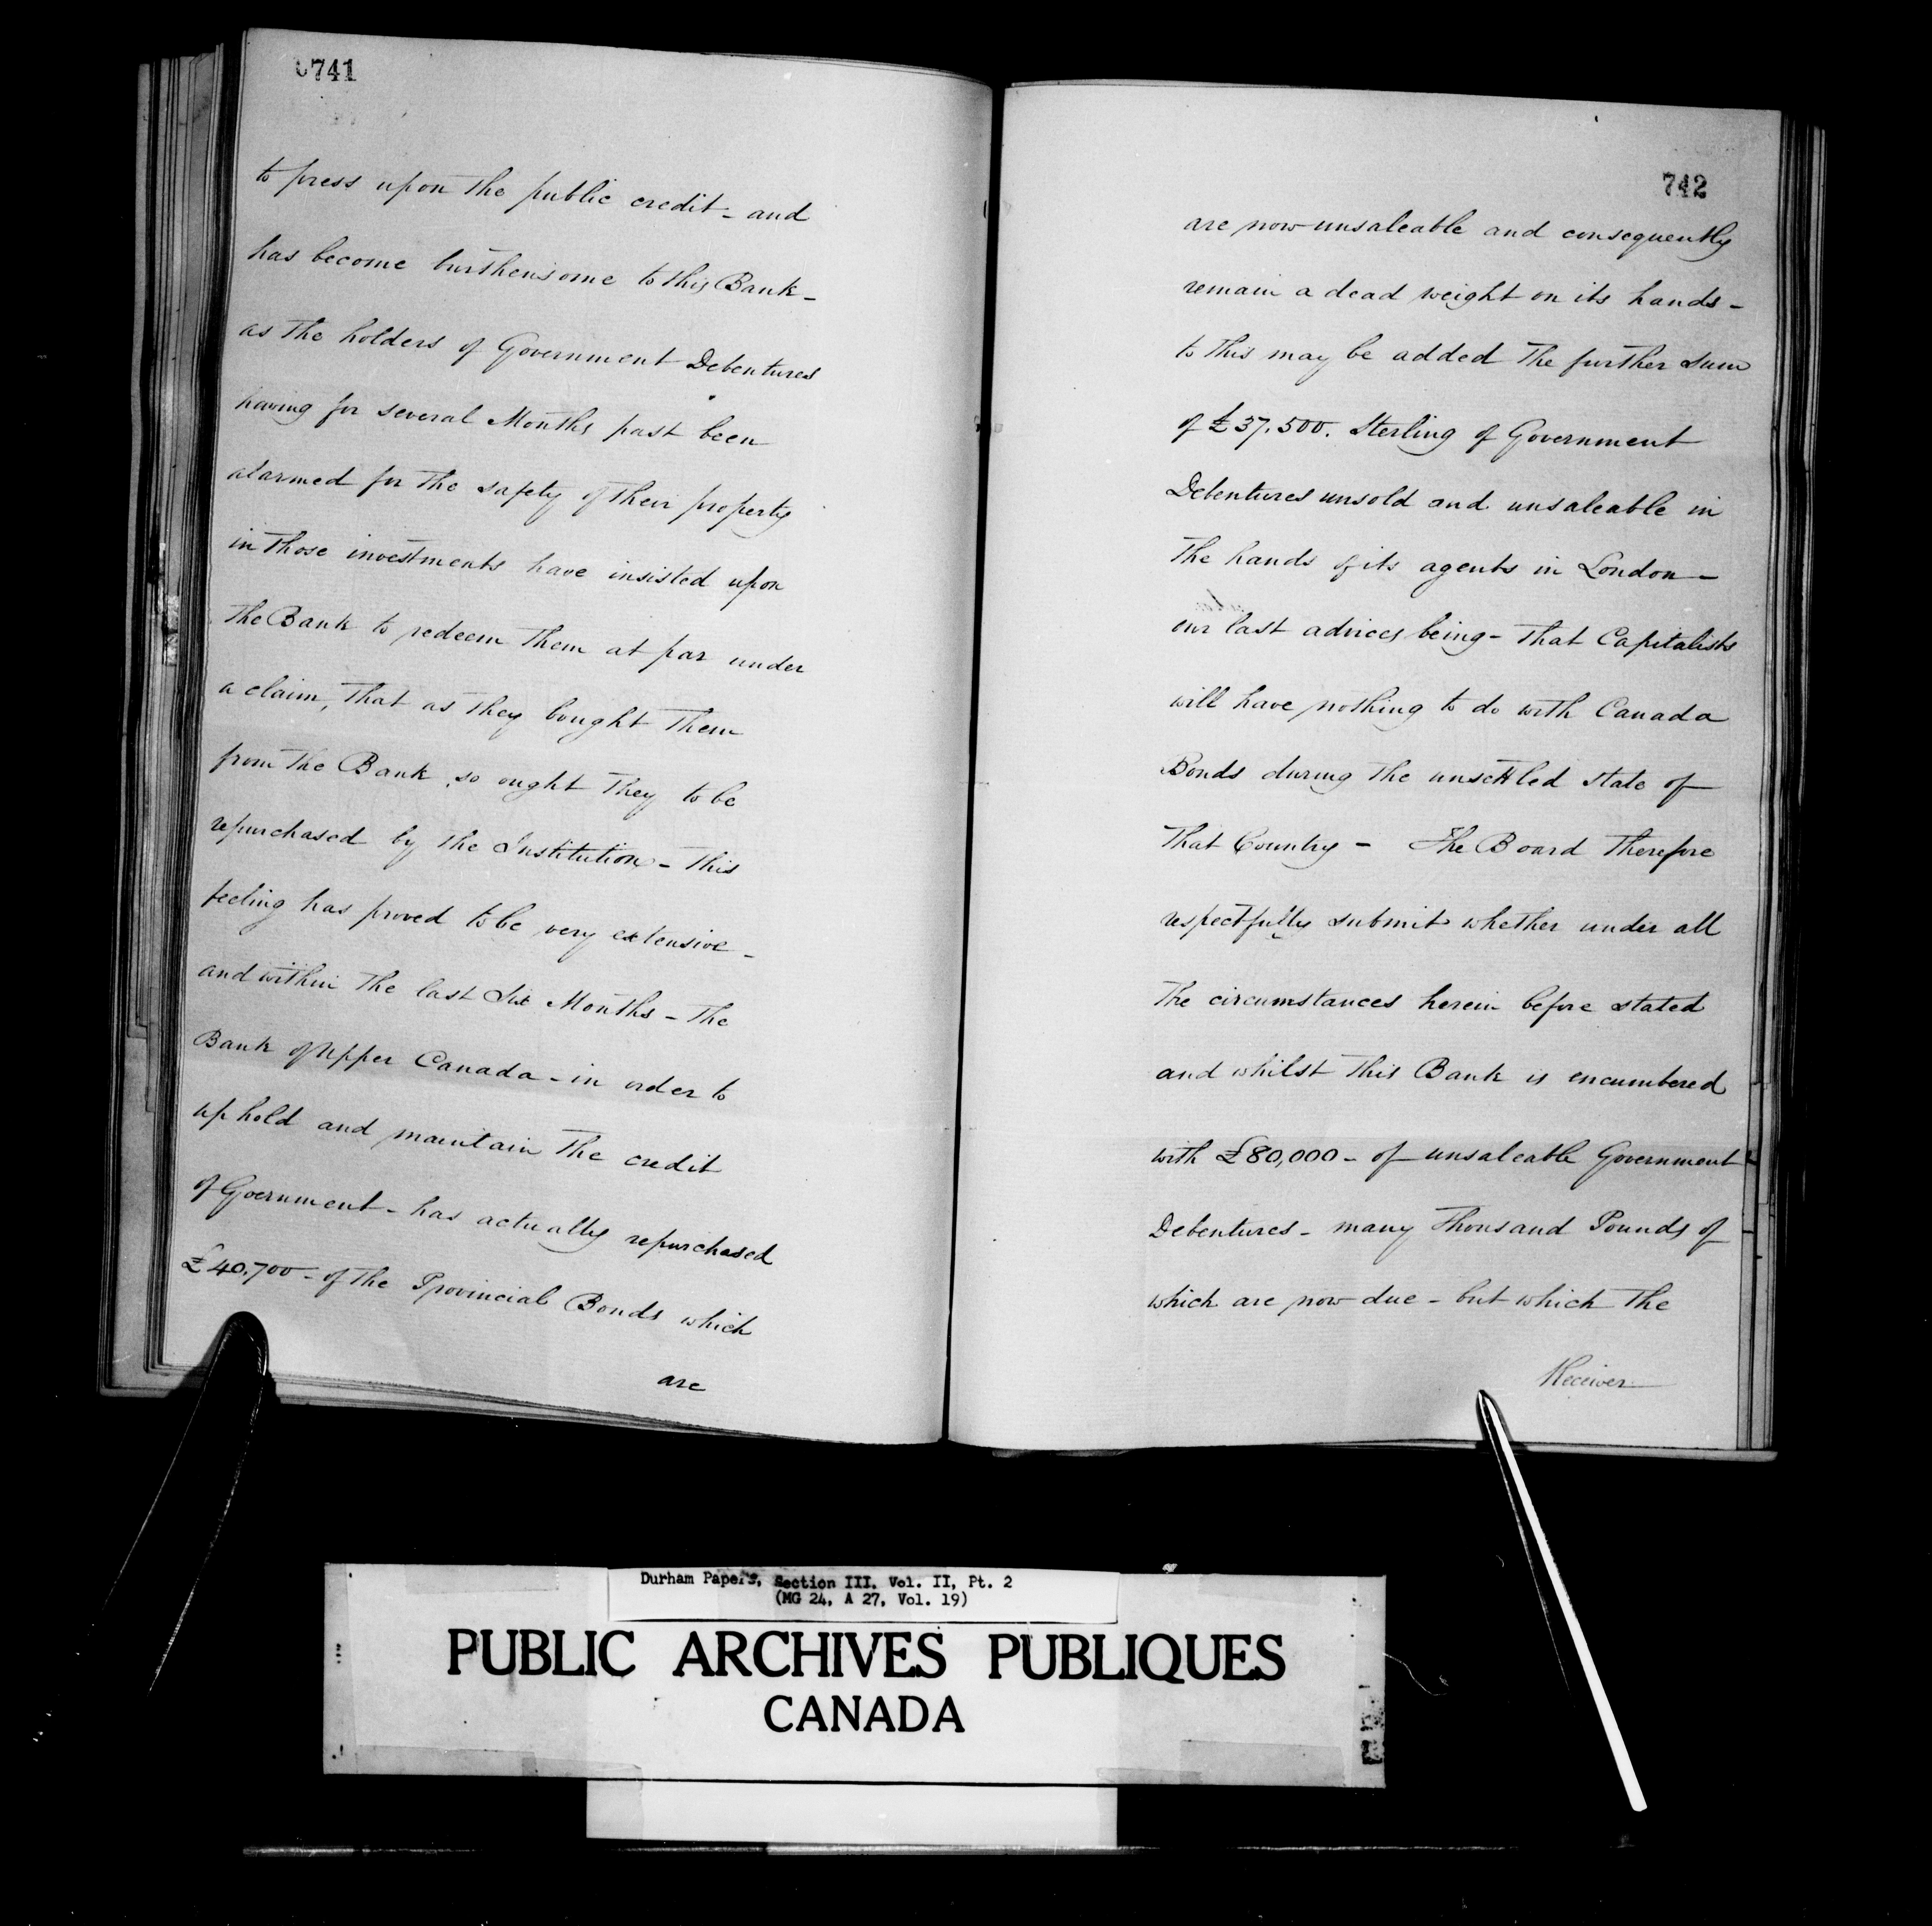 0741
to press upon the public credit - and
has become burthensome to this Bank -
as the holders of Government Debentures
having for several Months past been
alarmed for the safety of their property
in those investments have insisted upon
the Bank to redeem them at par under
a claim, that as they bought them
from the Bank, so ought they to be
repurchased by the Institution - this
feeling has proved to be very extensive -
and within the last Six Months - the
Bank of Upper Canada - in order to
uphold and maintain the credit
of Goernment - has actually repurchased
£40.700 - of the Provincial Bonds which
are
742
are now unsaleable and consequently
remain a dead weight on its hands -
to this may be added the further sum
of £37.500. Sterling of Government
Debentures unsold and unsaleable in
the hands of its agents in London -
our last advices being - that Capitalists
will have nothing to do with Canada
Bonds during the unsettled state of
that Country - The Board therefore
respectfully submit whether under all
the circumstances herein before stated
and whilst this Bank is encumbered
with £80,000 - of unsaleable Government
Debentures - many Thousand Pounds of
which are now due - but which the
Receiver
Durham Papers, Section III. Vol. II, Pt. 2
(MG 24, A 27, Vol. 19)
PUBLIC ARCHIVES PUBLIQUES
CANADA